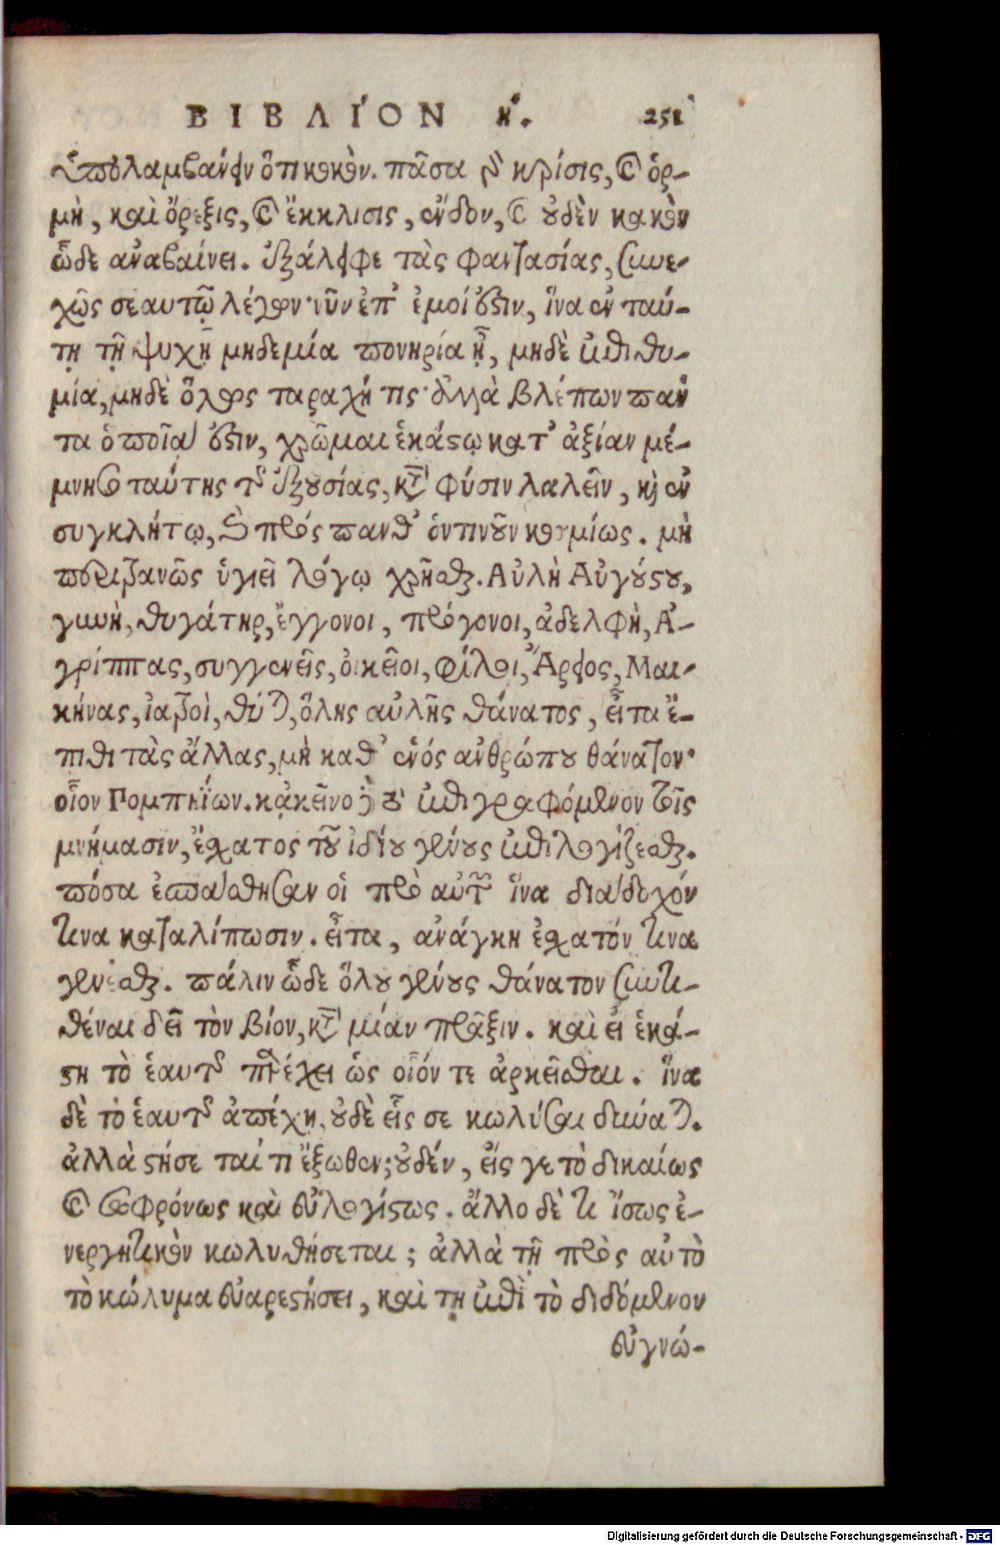 ΒΙΒΛΙ´ΟΝ η´. 251
ὑπολαμβάνειν ὅτι κακόν. πᾶσα γὰρ κρίσις, καὶ ὁρ-
μὴ, καὶ ὄρεξις, καὶ ἔκκλισις, ἔνδον, καὶ οὐδὲν κακὸν
ὧδε ἀναβαίνει. ἐξάλειφε τὰς φαντασίας, συνε-
χῶς σεαυτῷ λέγων· νῦν ἐπ' ἐμοί ἐστιν, ἵνα ἐν ταύ-
τῃ τῇ ψυχῇ μηδεμία πονηρία ᾖ, μηδὲ ἐπιθυ-
μία, μηδὲ ὅλως ταραχή τις· ἀλλὰ βλέπων πάν
τα ὁποῖα ἐστιν, χρῶμαι ἑκάστῳ κατ' ἀξίαν μέ-
μνησο ταύτης τῆς ἐξουσίας, κατὰ φύσιν λαλεῖν, καὶ ἐν
συγκλήτῳ, καὶ πρός πανθ' ὁντινοῦν κοσμίως. μὴ
περιτράνως ὑγιεῖ λόγῳ χρῆσθαι. Αὐλὴ Αὐγούστου,
γυνὴ, θυγάτηρ, ἔγγονοι, πρόγονοι, ἀδελφὴ, Ἀ-
γρίππας, συγγενεῖς, οἰκεῖοι, φίλοι, Ἄρειος, Μαι-
κήνας, ἰατροὶ, θύται, ὅλης αὐλῆς θάνατος, εἶτα ἔ-
πιθι τὰς ἄλλας, μὴ καθ' ἑνός ἀνθρώπου θάνατον·
οἷον Πομπηΐων. κἀκεῖνο δὲ τὸ ἐπιγραφόμενον τοῖς
μνήμασιν, ἔσχατος τοῦ ἰδίου γένους ἐπιλογίζεσθαι.
πόσα ἐσπάσθησαν οἱ πρὸ αὐτῶν ἵνα διάδοχόν
τινα καταλίπωσιν. εἶτα, ἀνάγκη ἔσχατόν τινα
γενέσθαι. πάλιν ὧδε ὅλου γένους θάνατον συντι-
θέναι δεῖ τὸν βίον, κατὰ μίαν πρᾶξιν. καὶ εἰ ἑκά-
στη τὸ ἑαυτῆς παρέχει ὡς οἷόν τε ἀρκεῖσθαι. ἵνα
δὲ τὸ ἑαυτῆς ἀπέχῃ, οὐδὲ εἷς σε κωλῦσαι δύναται.
ἀλλὰ στήσεταί τι ἔξωθεν; οὐδέν, εἴς γε τὸ δικαίως
καὶ σωφρόνως καὶ εὐλογίστως. ἄλλο δὲ τι ἴσως ἐ-
νεργητικὸν κωλυθήσεται; ἀλλὰ τῇ πρὸς αὐτὸ
τὸ κώλυμα εὐαρεστήσει, καὶ τῇ ἐπὶ τὸ διδόμενον
εὐγνώ-
Digitalisierung gefördert durch die Deutsche Forschungsgemeinschaft - DFG